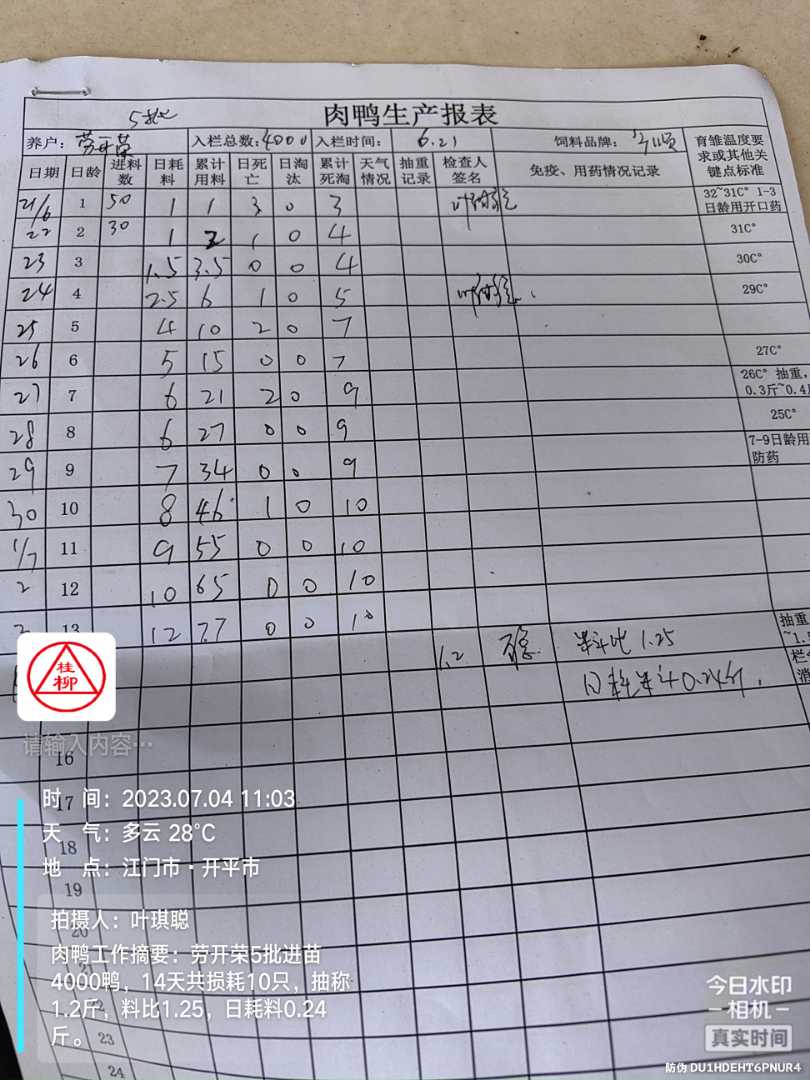 5批
肉鸭生产报表
养户: 劳开荣 入栏总数: 4000 入栏时间: 6.21 饲料品牌: 育雏温度要求或其他关键点标准
日期 日龄 进料数 日耗料 累计用料 日死亡 日淘汰 累计死淘 天气情况 抽重记录 检查人签名 免疫、用药情况记录
21/6 1 50 1 1 3 0 3 32~31C° 1-3日龄用开口药
22 2 30 1 2 1 0 4 31C°
23 3 1.5 3.5 0 0 4 30C°
24 4 2.5 6 1 0 5 29C°
25 5 4 10 2 0 7
26 6 5 15 0 0 7 27C°
27 7 6 21 2 0 9 26C° 抽重, 0.3斤~0.4
28 8 6 27 0 0 9 25C°
29 9 7 34 0 0 9 7-9日龄用防药
30 10 8 46 1 0 10
1/7 11 9 55 0 0 10
2 12 10 65 0 0 10
13 12 77 0 0 10 抽重
1.2 料比1.25
日耗料0.24斤.
桂柳
请输入内容…
16
17
18
19
20
23
24
时 间: 2023.07.04 11:03
天 气: 多云 28℃
地 点: 江门市·开平市
拍摄人: 叶琪聪
肉鸭工作摘要: 劳开荣5批进苗
4000鸭，14天共损耗10只，抽称
1.2斤，料比1.25，日耗料0.24
斤。
今日水印
相机
真实时间
防伪 DU1HDEHT6PNUR4